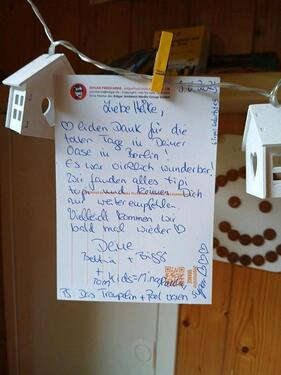 EDGAR FREECARDS
Liebe Heike,
♡lichen Dank für die
tollen Tage in Deiner
Oase in Berlin!
Es war wirklich wunderbar!
Wir fanden alles tipi
topi und können Dich
nur weiterempfehlen
Vielleicht kommen wir
bald mal wieder ♡
Deine
Bettina + Ziggi
+ Kids =
Tom
PS. Das Trampolin + Pool waren
super ♡♡♡♡